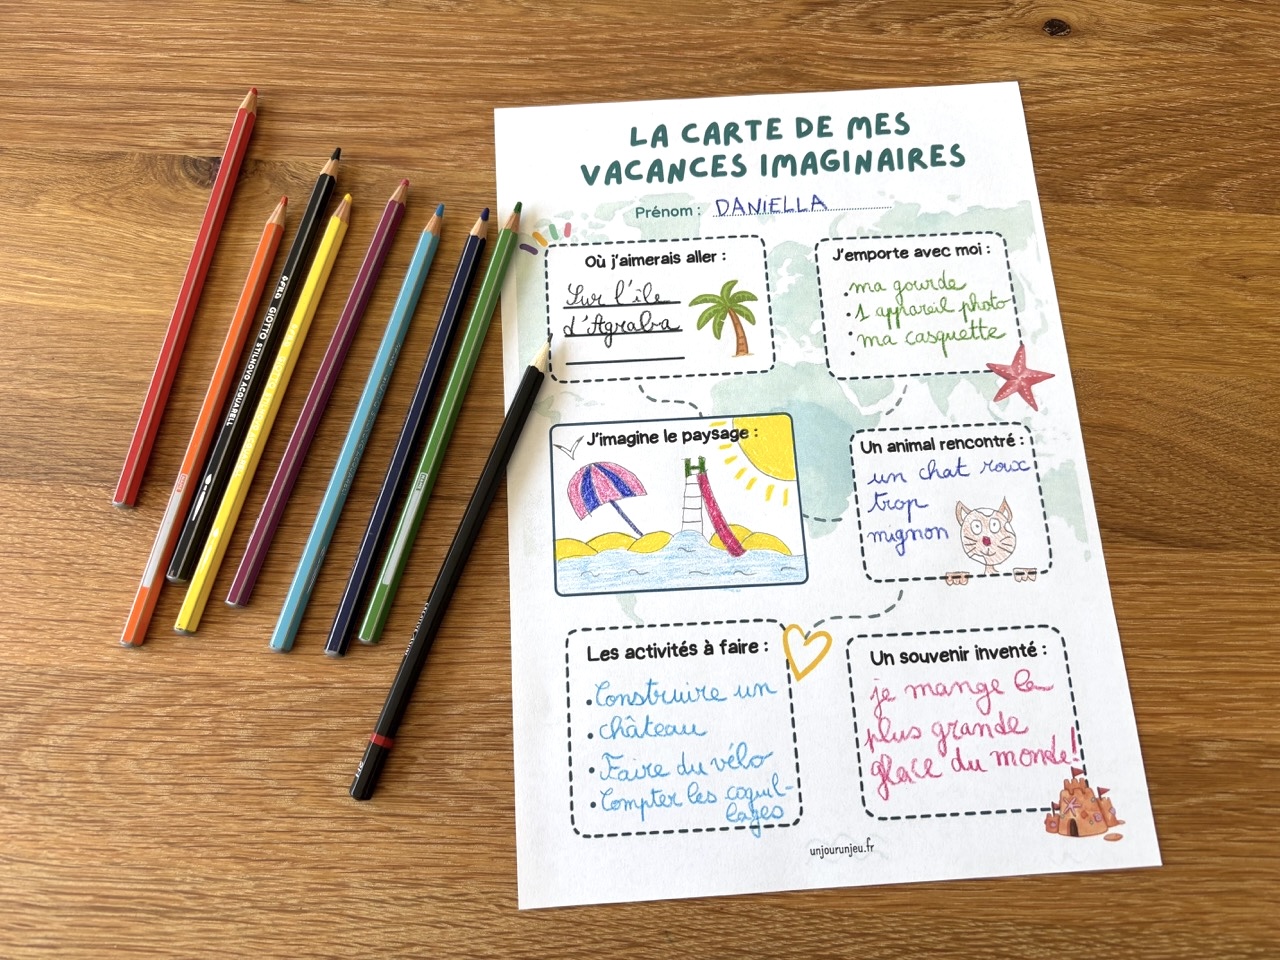 LA CARTE DE MES
VACANCES IMAGINAIRES
Prénom : DANIELLA
Où j'aimerais aller :
Sur l'île
d'Agraba
J'emporte avec moi :
• ma gourde
• 1 appareil photo
• ma casquette
•
J'imagine le paysage :
Un animal rencontré :
un chat roux
trop
mignon
Les activités à faire :
• Construire un
• château
• Faire du vélo
• Compter les coquil-
lages
Un souvenir inventé :
je mange la
plus grande
glace du monde!
unjourunjeu.fr
GIOTTO STILNOVO ACQUARELL